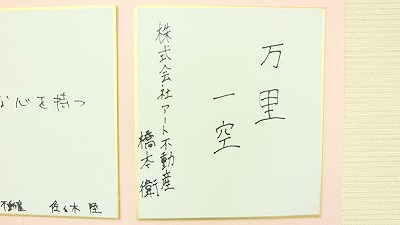 万里
一空
株式会社アート不動産
橋本 衛
な心を持つ
不動産 佐々木 陸